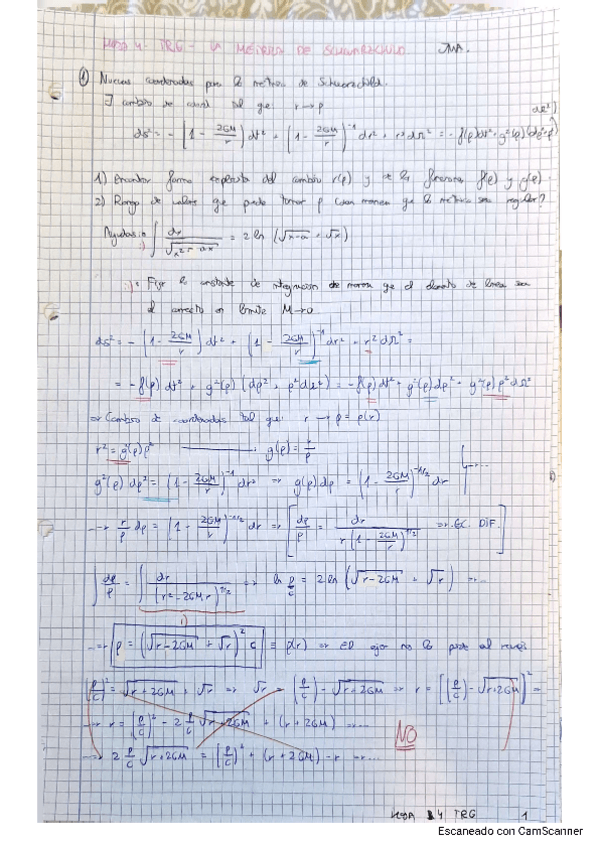 HOJA 4 - TRG - LA MÉTRICA DE SCHWARZSCHILD JMA.
① Nuevas coordenadas para la métrica de Schwarzschild.
∃ cambio de coord tal que r → ρ
ds² = -(1 - 2GM/r) dt² + (1 - 2GM/r)⁻¹ dr² + r² dΩ² = -f(ρ)dt² + g²(ρ)(dρ² + ρ² dΩ²)
1) Encontrar forma explícita del cambio r(ρ) y de las funciones f(ρ) y g(ρ)
2) Rango de valores que puede tomar ρ
∫ dr / √(x² - ax) = 2 ln (√(x-a) + √x)
Fijar la constante de integración de manera que el elemento de línea sea
el correcto en límite M→0
ds² = -(1 - 2GM/r) dt² + (1 - 2GM/r)⁻¹ dr² + r² dΩ² =
= -f(ρ) dt² + g²(ρ) (dρ² + ρ² dΩ²) = -f(ρ) dt² + g²(ρ) dρ² + g²(ρ) ρ² dΩ²
⇒ Cambio de coordenadas tal que: r → ρ = ρ(r)
r² = g²(ρ) ρ² → g(ρ) = r/ρ
g²(ρ) dρ² = (1 - 2GM/r)⁻¹ dr² ⇒ g(ρ) dρ = (1 - 2GM/r)^(-1/2) dr
→ r/ρ dρ = (1 - 2GM/r)^(-1/2) dr ⇒ [dρ/ρ = dr / r(1 - 2GM/r)^(1/2) ⇒ EC. DIF.]
∫ dρ/ρ = ∫ dr / (r² - 2GMr)^(1/2) ⇒ ln ρ/c = 2 ln (√(r-2GM) + √r) ⇒ ...
→ ρ = (√(r-2GM) + √r)² c ≡ ρ(r) ⇒ El ejer nos lo pide al revés
(ρ/c)^(1/2) = √(r+2GM) + √r ⇒ √r = (ρ/c) - √(r+2GM) ⇒ r = [(ρ/c) - √(r+2GM)]² =
→ r = (ρ/c)² - 2 ρ/c √(r+2GM) + (r + 2GM) → ...
NO
→ 2 ρ/c √(r+2GM) = (ρ/c)² + (r + 2GM) - r → ...
HOJA 4 TRG 1
Escaneado con CamScanner